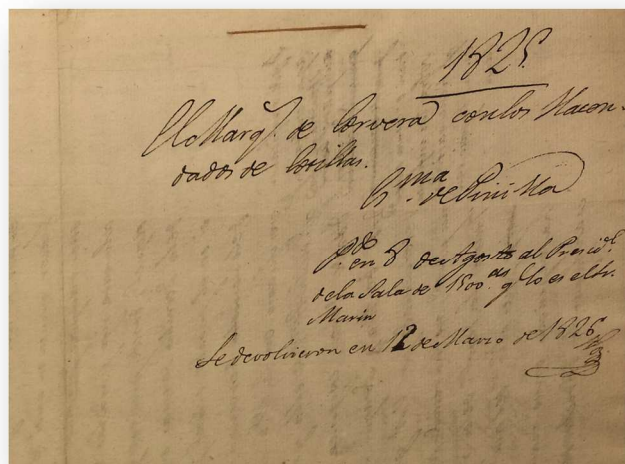 1825.
El Marq.s de Corvera con los Hacen-
dados de Cotillas.
Es.nia de Pinilla
P.do en 8 de Agosto al Presid.te
de la Sala de 1500.as q lo es el Sr.
Marin
Se devolvieron en 12 de Marzo de 1826